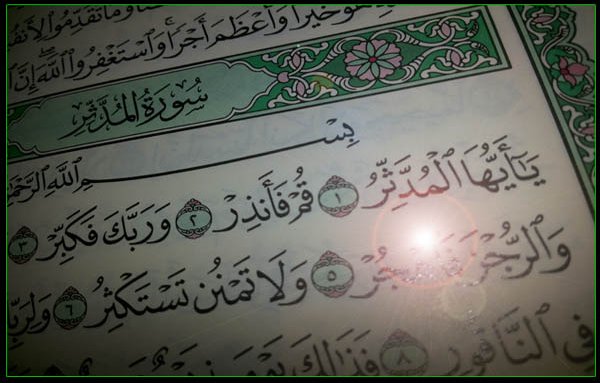 وَمَا تُقَدِّمُوا لِأَنفُ
هُوَ خَيْرًا وَأَعْظَمَ أَجْرًا وَٱسْتَغْفِرُوا ٱللَّهَ إِنَّ
سُورَةُ المُدَّثِّرِ
بِسْمِ ٱللَّهِ ٱلرَّحْمَٰ
يَٰٓأَيُّهَا ٱلْمُدَّثِّرُ ١ قُمْ فَأَنذِرْ ٢ وَرَبَّكَ فَكَبِّرْ ٣
وَٱلرُّجْزَ فَٱهْجُرْ ٥ وَلَا تَمْنُن تَسْتَكْثِرُ ٦ وَلِرَبِّ
فِي ٱلنَّاقُورِ ٨ فَذَٰلِكَ يَوْمَئِذٍ